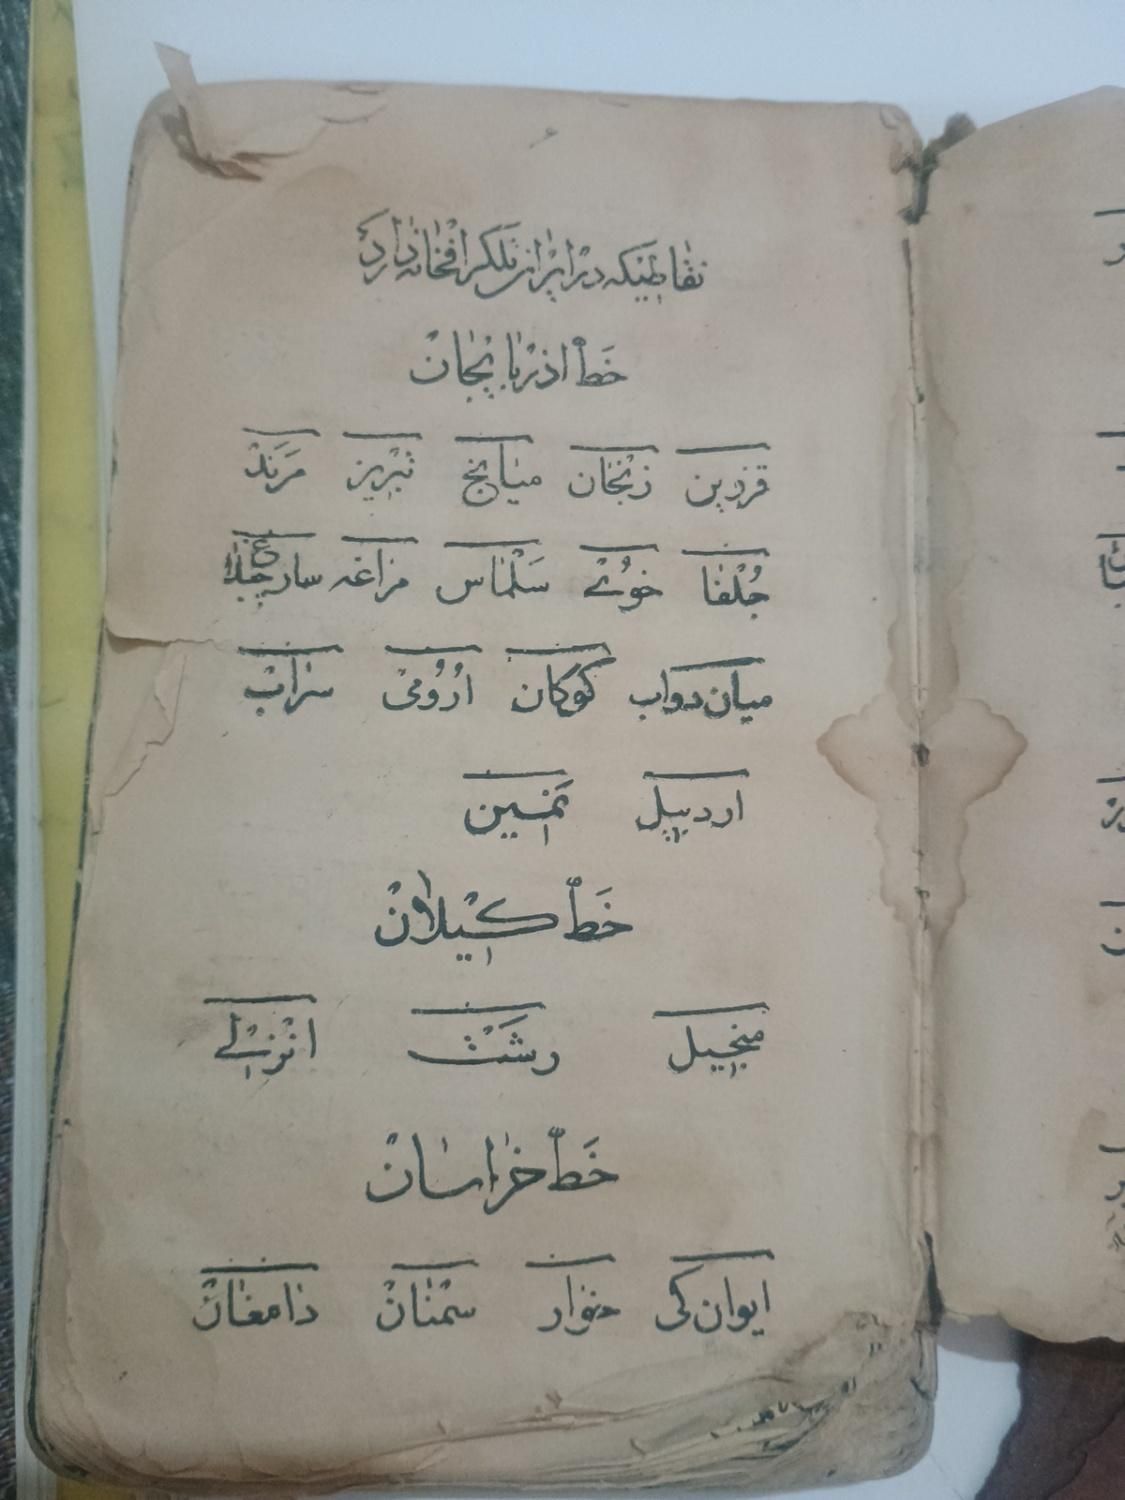 نقاطیکه در ایران تلگرافخانه دارد
خطّ اذربایجان
قزوین زنجان میانج تبریز مرند
جُلفا خوی سَلماس مراغه ساوجبلاغ
میان دواب کوکان ارُومی سراب
اردبیل نمین
خطّ کیلان
منجیل رشت انزلی
خطّ خراسان
ایوان کی خوار سمنان دامغان